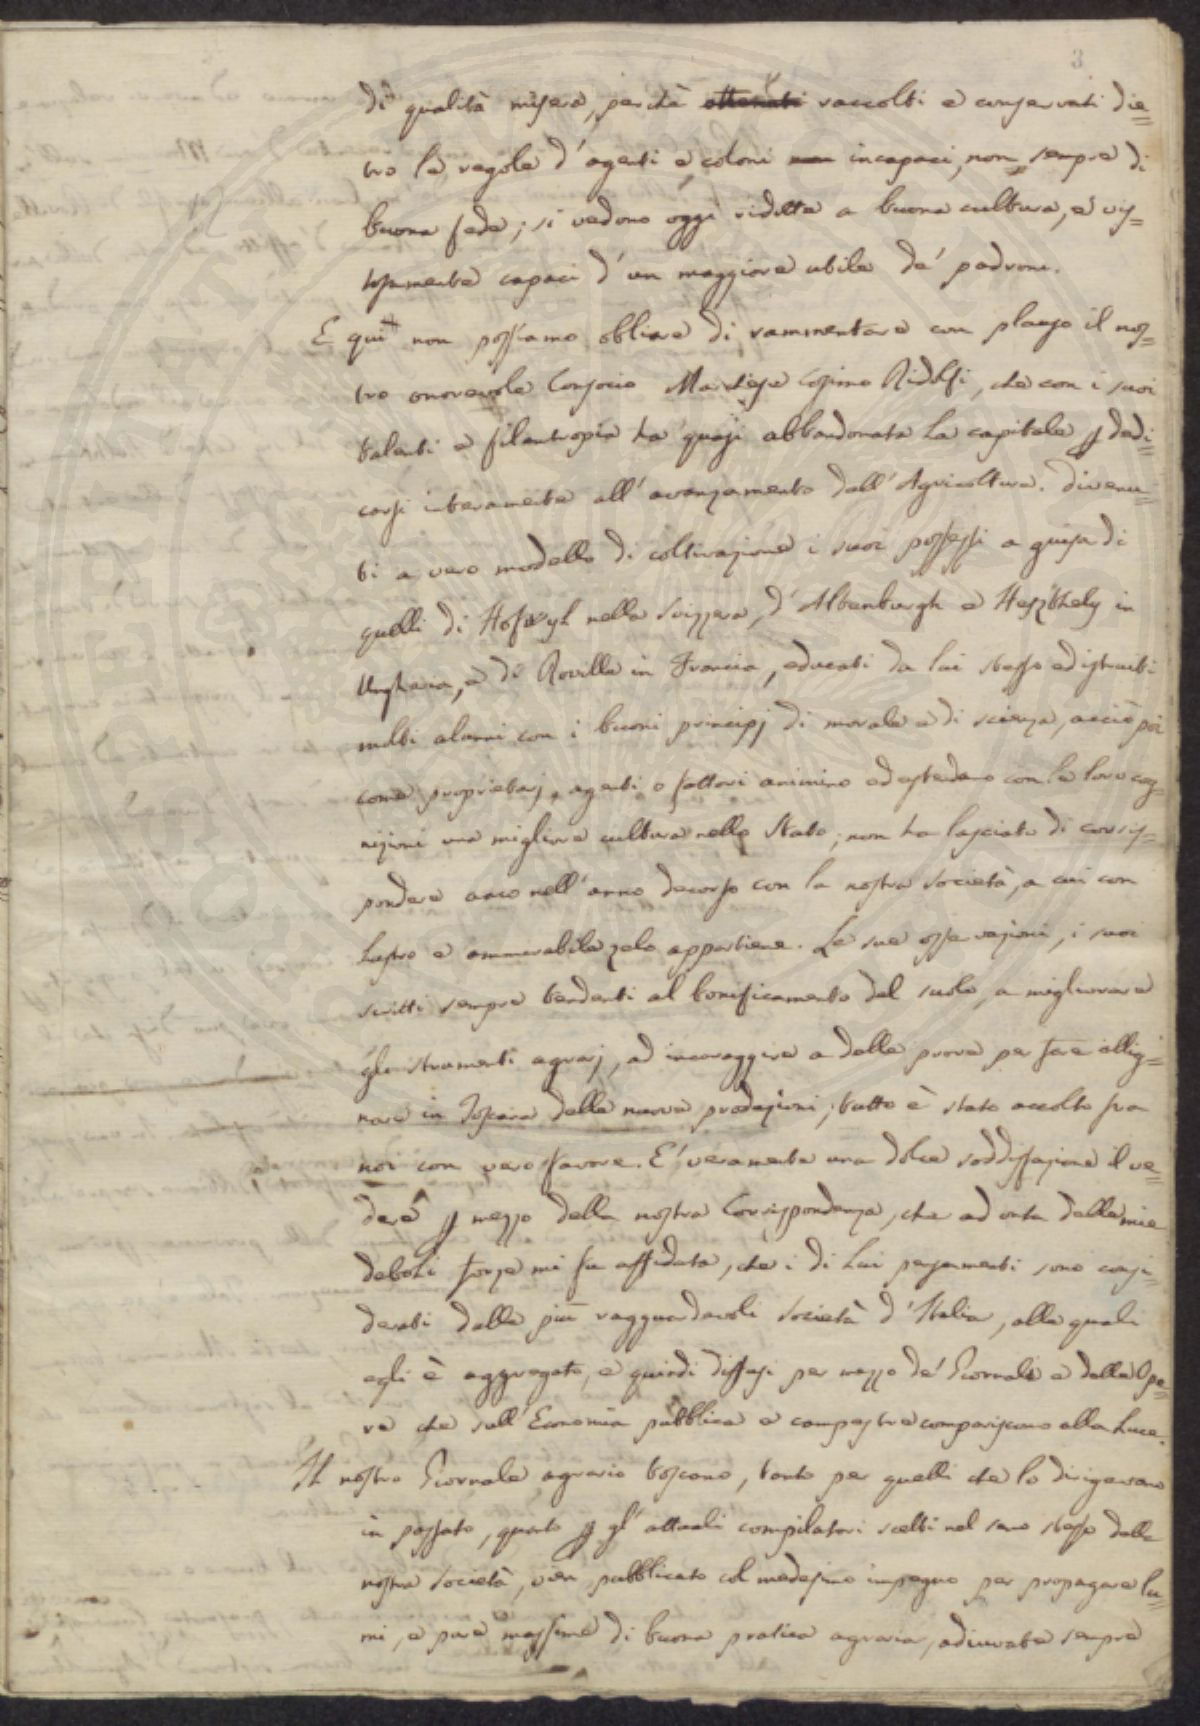 3
di qualità misera, perchè ottenuti raccolti e conservati die=
tro le regole d'agenti e coloni non incapaci, non sempre di
buona fede; si vedono oggi ridotte a buona cultura, e vis=
tosamente capaci d'un maggiore utile de' padroni.
E quì non possiamo obliare di rammentare con plauso il nos=
tro onorevole Consocio Marchese Cosimo Ridolfi, che con i suoi
talenti e filantropia ha quasi abbandonata la capitale p dedi=
carsi interamente all'avanzamento dell'Agricoltura. Divenu=
ti a vero modello di coltivazione i suoi possessi a guisa di
quelli di Hofwyl nella Svizzera, d'Altenburgh e Heszthely in
Ungheria, e di Roville in Francia, educati da lui stesso ed istruiti
molti alunni con i buoni principj di morale e di scienza, acciò poi
come proprietarj, agenti, o fattori animino ed estendano con le loro cog=
nizioni una migliore cultura nello Stato; non ha lasciato di corris=
pondere anco nell'anno decorso con la nostra Società, a cui con
lustro e ammirabile zelo appartiene. Le sue osservazioni, i suoi
scritti sempre tendenti al bonificamento del suolo, a migliorare
gli istrumenti agrarj, ad incoraggire a delle prove per fare allig=
nare in Toscana delle nuove produzioni; tutto è stato accolto fra
noi con vero favore. E' veramente una dolce soddisfazione il ve=
dere p mezzo della nostra Corrispondenza, che ad onta delle mie
deboli forze mi fu affidata, che i di Lui pensamenti sono consi=
derati dalle più ragguardevoli Società d'Italia, alle quali
egli è aggregato, e quindi diffusi per mezzo de' Giornali e delle Ope=
re che sull'Economia pubblica e campestre compariscono alla Luce.
Il nostro Giornale agrario toscano, tanto per quelli che lo dirigevano
in passato, quanto p gl'attuali compilatori scelti nel seno stesso della
nostra Società, vien pubblicato col medesimo impegno per propagare lu=
mi, e pure massime di buona pratica agraria, adiuvate sempre